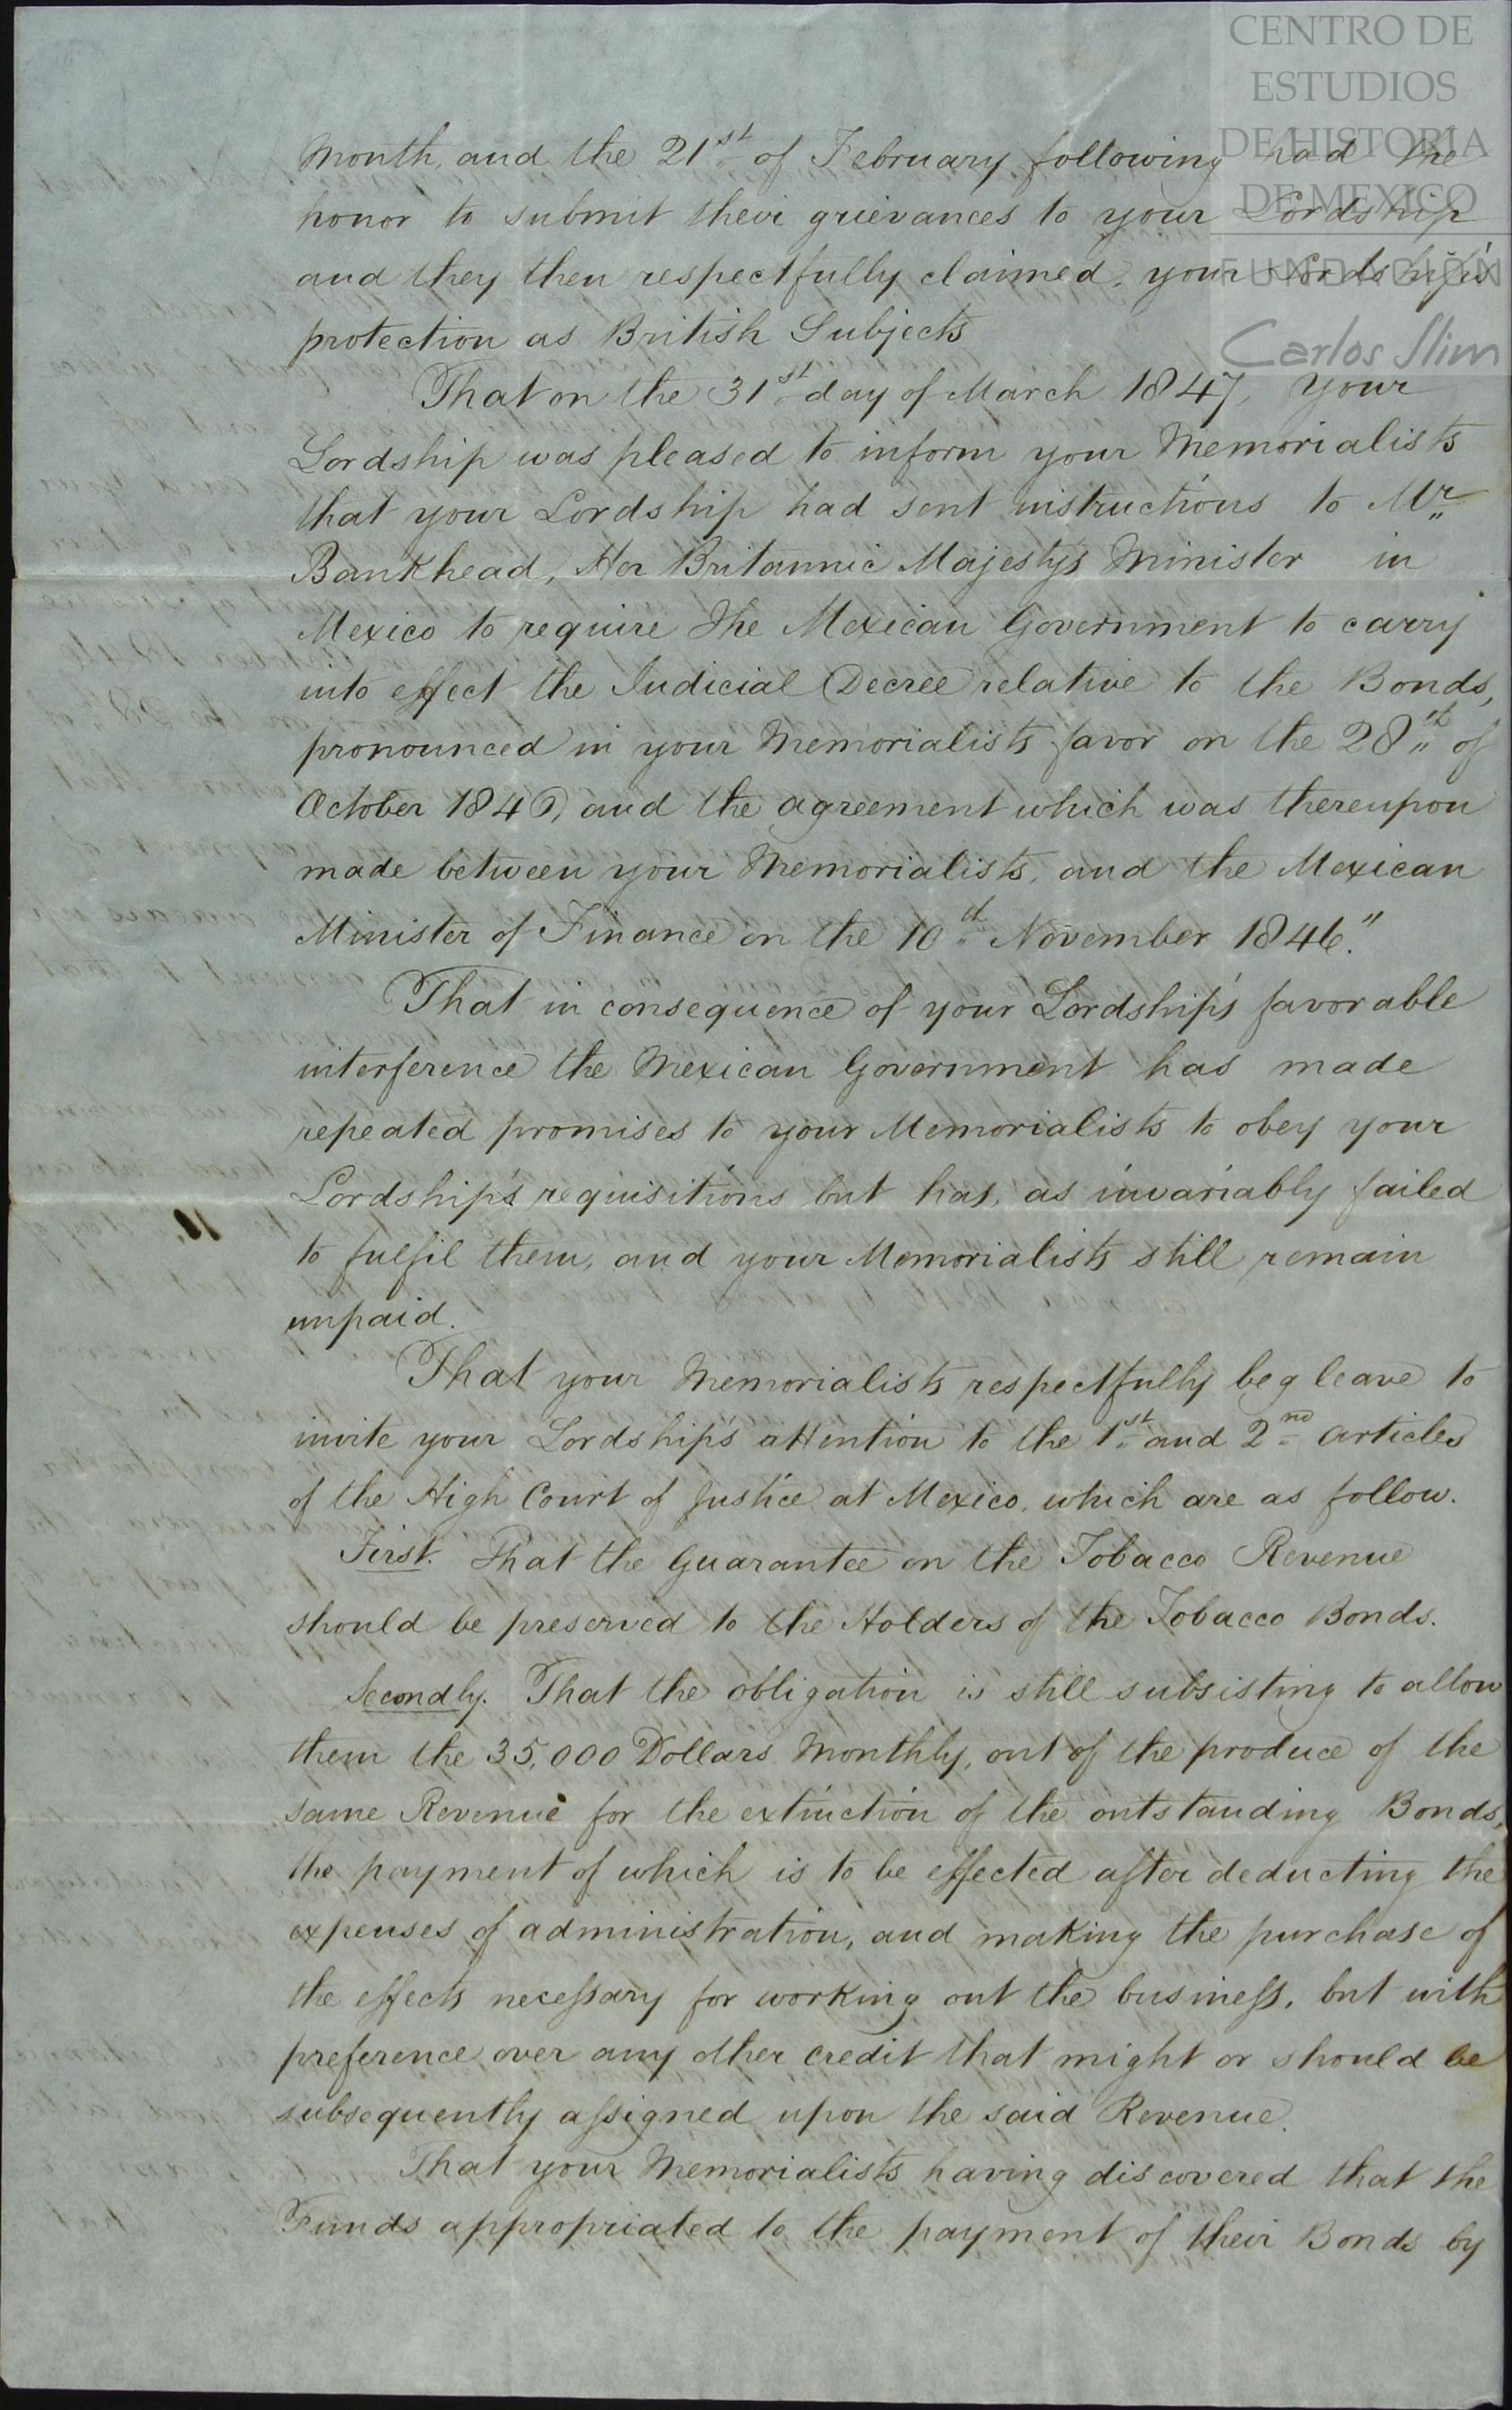 CENTRO DE
ESTUDIOS
DE HISTORIA
DE MEXICO
FUNDACIÓN
Carlos Slim
Month, and the 21st of February following had the
honor to submit their grievances to your Lordship
and they then respectfully claimed, your Lordship's
protection as British Subjects
That on the 31st day of March 1847, your
Lordship was pleased to inform your Memorialists
that your Lordship had sent instructions to Mr
Bankhead, Her Britannic Majestys Minister in
Mexico to require the Mexican Government to carry
into effect the Judicial Decree relative to the Bonds,
pronounced in your Memorialists favor on the 28th of
October 1846, and the agreement which was thereupon
made between your Memorialists, and the Mexican
Minister of Finance on the 10th November 1846."
That in consequence of your Lordship's favorable
interference the Mexican Government has made
repeated promises to your Memorialists to obey your
Lordship's requisitions but has, as invariably failed
to fulfil them, and your Memorialists still remain
unpaid.
That your Memorialists respectfully beg leave to
invite your Lordship's attention to the 1st and 2nd articles
of the High Court of Justice at Mexico, which are as follow.
First. That the Guarantee on the Tobacco Revenue
should be preserved to the Holders of the Tobacco Bonds.
Secondly. That the obligation is still subsisting to allow
them the 35,000 Dollars Monthly, out of the produce of the
same Revenue for the extinction of the outstanding Bonds,
the payment of which is to be effected after deducting the
expenses of administration, and making the purchase of
the effects necessary for working out the business, but with
preference over any other credit that might or should be
subsequently assigned upon the said Revenue.
That your Memorialists having discovered that the
Funds appropriated to the payment of their Bonds by